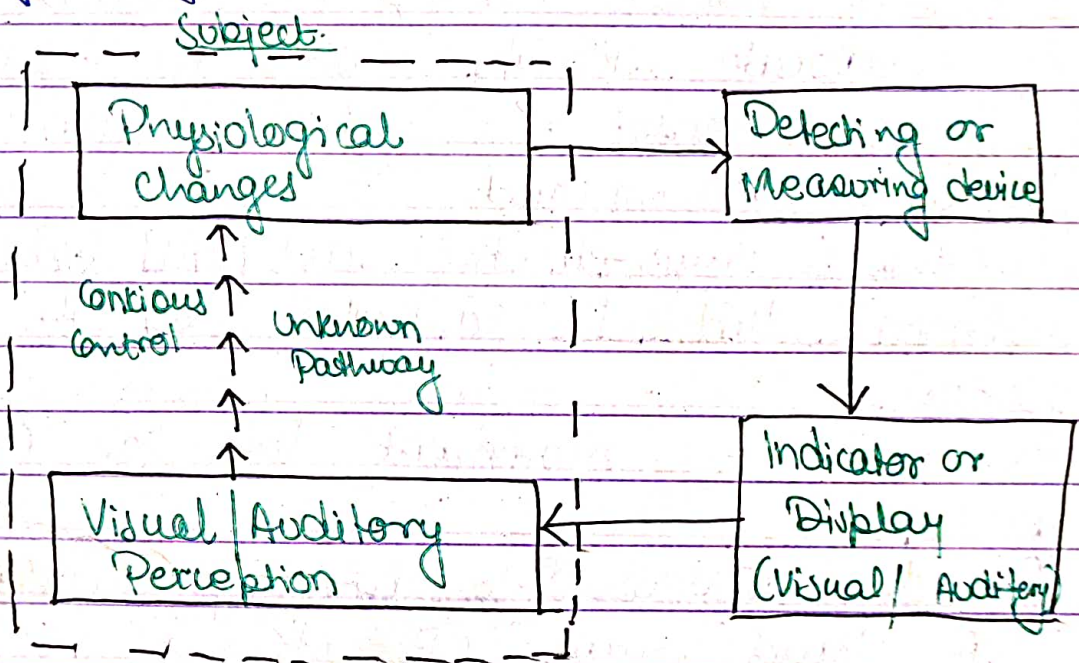 Subject.
Physiological
Changes
Detecting or
Measuring device
Concious
Control
Unknown
Pathway
Indicator or
Display
(Visual / Auditory)
Visual / Auditory
Perception